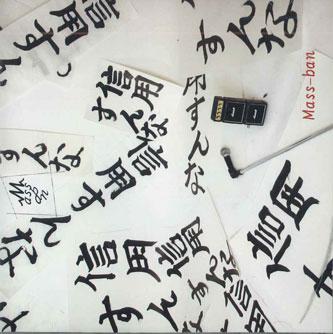 信用す
すんな
Mass-ban
信用
すんな
すんな
信用す
んな
信用
すん
信用
すんな
信用
信用